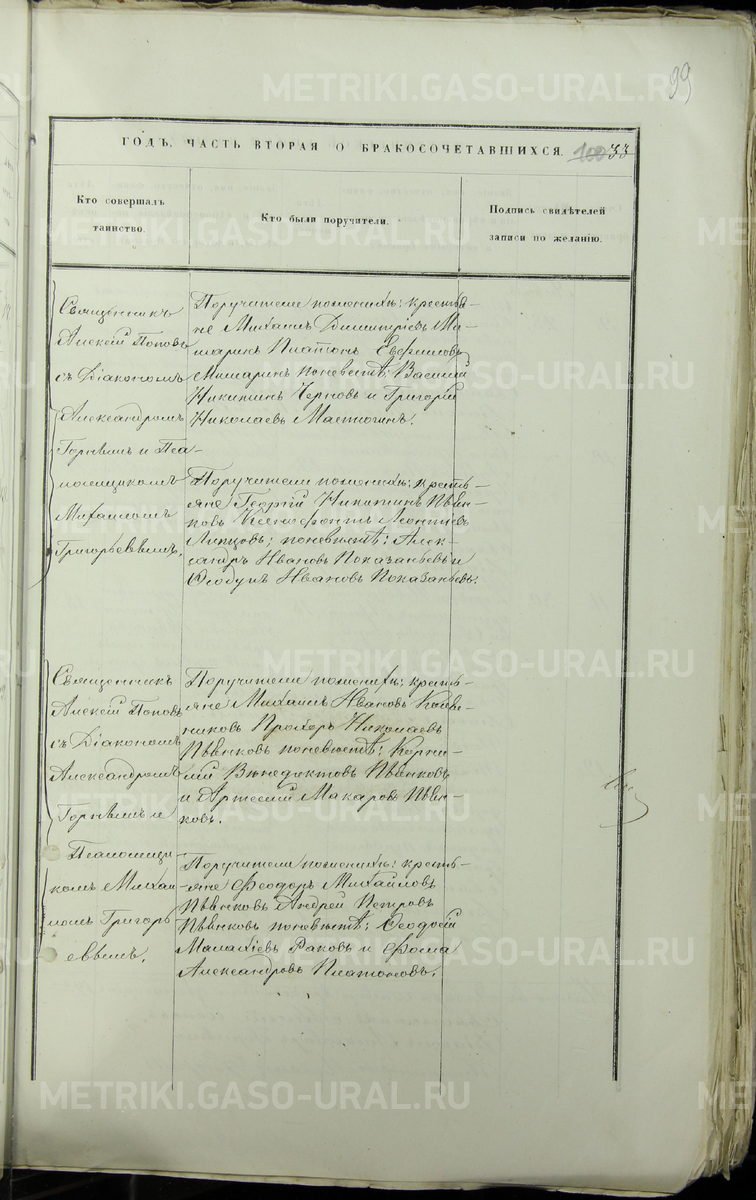 99
ГОДЪ, ЧАСТЬ ВТОРАЯ О БРАКОСОЧЕТАВШИХСЯ. 100 33
Кто совершалъ
таинство.
Кто были поручители.
Подпись свидѣтелей
записи по желанію.
Священникъ
Алексій Поповъ
съ Діакономъ
Александромъ
и Пса-
ломщикомъ
Михаиломъ
Григорьевымъ.
Поручители по женихѣ: крестья-
не Михаилъ Димитріевъ
Платонъ
по невѣстѣ: Василій
Никитинъ Черновъ и Григорій
Николаевъ
Поручители по женихѣ: кресть-
яне Георгій Никитинъ Пьян-
ковъ Ксенофонтъ Леонтіевъ
по невѣстѣ: Алек-
сандръ Ивановъ Показаньевъ и
Ѳеодулъ Ивановъ Показаньевъ.
Священникъ
Алексій Поповъ
съ Діакономъ
Александромъ
и
Псаломщи-
комъ Михаи-
ломъ Григорь-
евымъ.
Поручители по женихѣ: кресть-
яне Михаилъ Ивановъ
Прохоръ Николаевъ
Пьянковъ по невѣстѣ: Корни-
лій Венедиктовъ Пьянковъ
и Артемій Макаровъ Пьян-
ковъ.
Поручители по женихѣ: кресть-
яне Феодоръ Михайловъ
Пьянковъ Андрей Петровъ
Пьянковъ по невѣстѣ: Ѳеодосій
Малахіевъ Раковъ и Фома
Александровъ Платоновъ.
METRIKI.GASO-URAL.RU